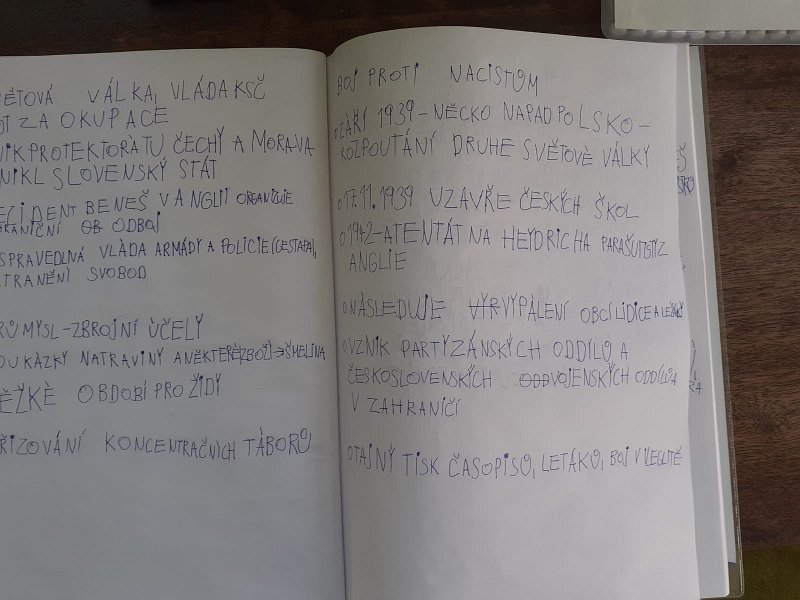 ĚTOVÁ VÁLKA, VLÁDA KSČ
OT ZA OKUPACE
NIK PROTEKTORÁTU ČECHY A MORAVA
NIKL SLOVENSKÝ STÁT
ECIDENT BENEŠ V ANGLII ORGANIZUJE
HRANIČNÍ OB ODBOJ
SPRAVEDLNÁ VLÁDA ARMÁDY A POLICIE (GESTAPA),
TRANĚNÍ SVOBOD
RŮMYSL-ZBROJNÍ ÚČELY
OUKÁZKY NATRAVINY A NĚKTERÉ ZBOŽÍ → ŠMELINA
ĚŽKÈ OBDOBÍ PRO ŽIDY
ŘIZOVÁNÍ KONCENTRAČNÍCH TÁBORŮ
BOJ PROTI NACISTŮM
ZÁŘÍ 1939 - NĚCKO NAPAD POLSKO -
ROZPOUTÁNÍ DRUHE SVĚTOVÈ VÁLKY
17.11.1939 UZAVŘE ČESKÝCH ŠKOL
1942-ATENTÁT NA HEYDRICHA PARAŠUTISTY Z
ANGLIE
NÁSLEDUJE VYR VYPÁLENÍ OBCÍ LIDICE A LEŽÁKY
VZNIK PARTYZÁNSKÝCH ODDÍLŮ A
ČESKOSLOVENSKÝCH ODD VOJENSKÝCH ODDÍLŮ
V ZAHRANIČÍ
TAJNÝ TISK ČASOPISŮ, LETÁKŮ, BOJ V ILEGLITĚ